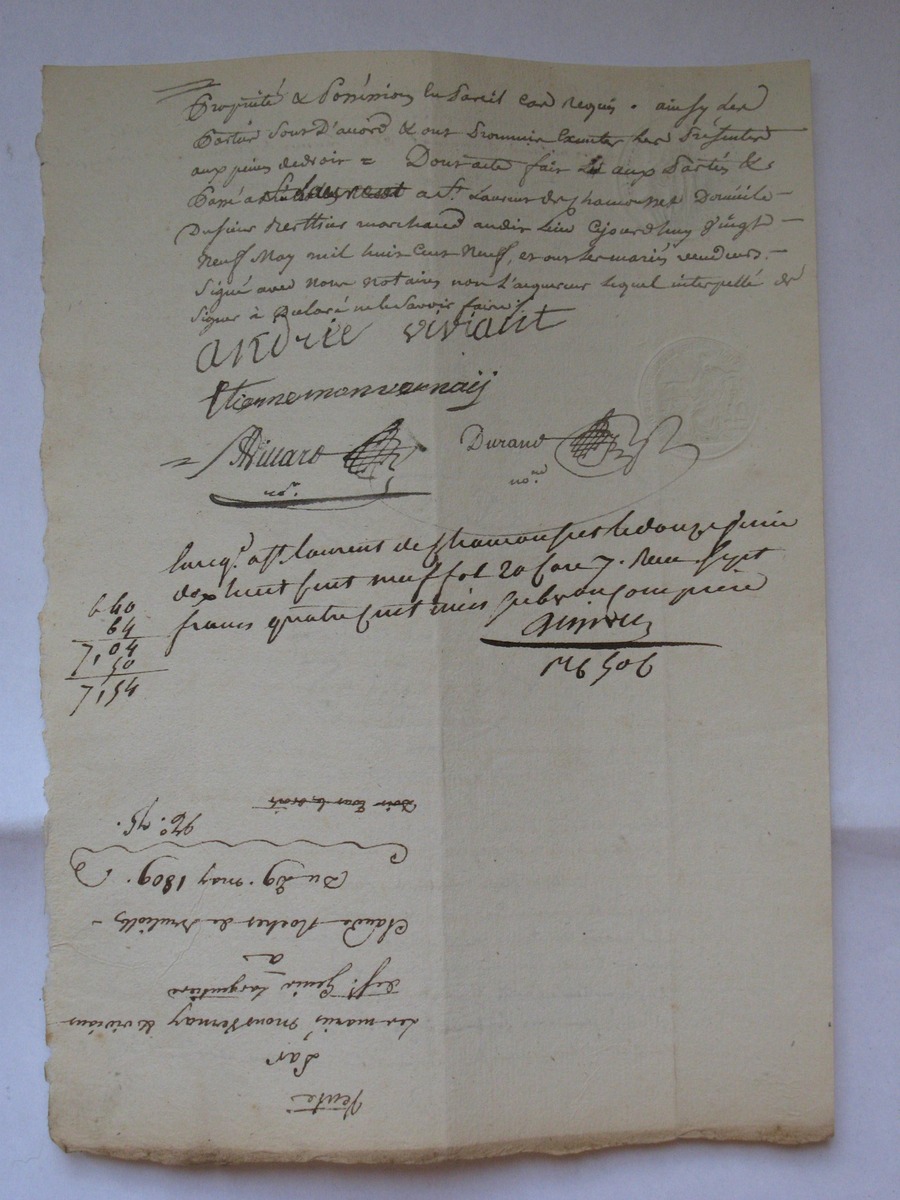 Propriété & Possession En Pareil cas requis . ainsy les
Parties sont D'accord & ont Promis Executer Les Présentes
aux peines de droit = Dont acte fait Lu aux Parties &
Passé a St. Laurent de Chamousset Domicile
Du sieur Berthier marchand audit Lieu Cejourdhuy Vingt
Neuf May mil huit Cent Neuf, et ont les mariés vendeurs
signé avec Nous Notaires non L'acquereur Lequel interpellé de
signer à Declaré ne le savoir faire
andrée viviant
Etienne monvernaij
= nore.
Durand
nore.
Enregé. a St. laurent de Chamousset le douze juin
dix huit cent neuf fol 20 Case 7. Reçu Sept
francs quatre cent
640
64
7,04
50
7,54
Vente
Par
Les mariés Monvernay & vivian
de St. Genis Largentiere
a
Claude de
Du 29. may 1809.
No. 75.